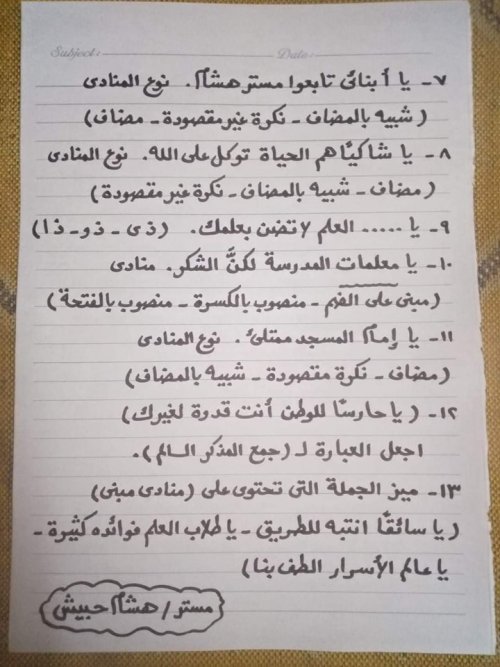 Subject: Date:
٧- يا أبنائى تابعوا مستر هشام. نوع المنادى
(شبيه بالمضاف - نكرة غير مقصودة - مضاف)
٨- يا شاكيًا هم الحياة توكل على الله. نوع المنادى
(مضاف - شبيه بالمضاف - نكرة غير مقصودة)
٩- يا ..... العلم لا تضن بعلمك. (ذى - ذو - ذا)
١٠- يا معلمات المدرسة لكنَّ الشكر. منادى
(مبنى على الضم - منصوب بالكسرة - منصوب بالفتحة)
١١- يا إمام المسجد ممتلئ. نوع المنادى
(مضاف - نكرة مقصودة - شبيه بالمضاف)
١٢- (يا حارسًا للوطن أنت قدرة لغيرك)
اجعل العبارة لـ (جمع المذكر السالم).
١٣- ميز الجملة التى تحتوى على (منادى مبنى)
(يا سائقًا انتبه للطريق - يا طلاب العلم فوائده كثيرة -
يا عالم الأسرار الطف بنا)
مستر / هشام حبيش